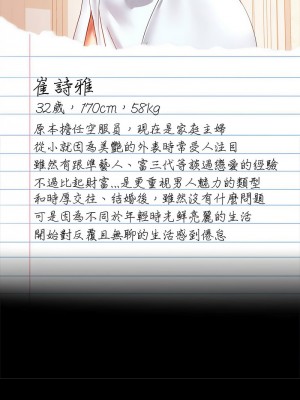 崔詩雅
32歲，170cm，58kg
原本擔任空服員，現在是家庭主婦
從小就因為美艷的外表時常受人注目
雖然有跟準藝人、富三代等談過戀愛的經驗
不過比起財富...是更重視男人魅力的類型
和時厚交往、結婚後，雖然沒有什麼問題
可是因為不同於年輕時光鮮亮麗的生活
開始對反覆且無聊的生活感到倦怠